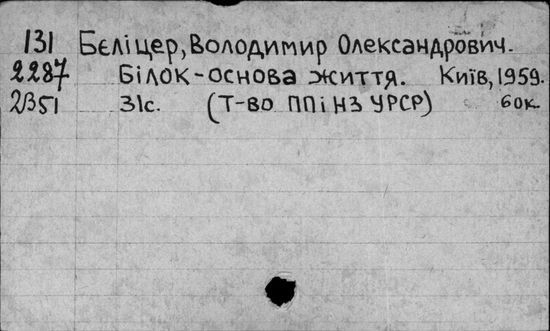 131 Бєліцер, Володимир Олександрович.
2287 Білок-основа життя. Київ, 1959.
2В51 31с. (Т-во ППіНЗ УРСР) 60к